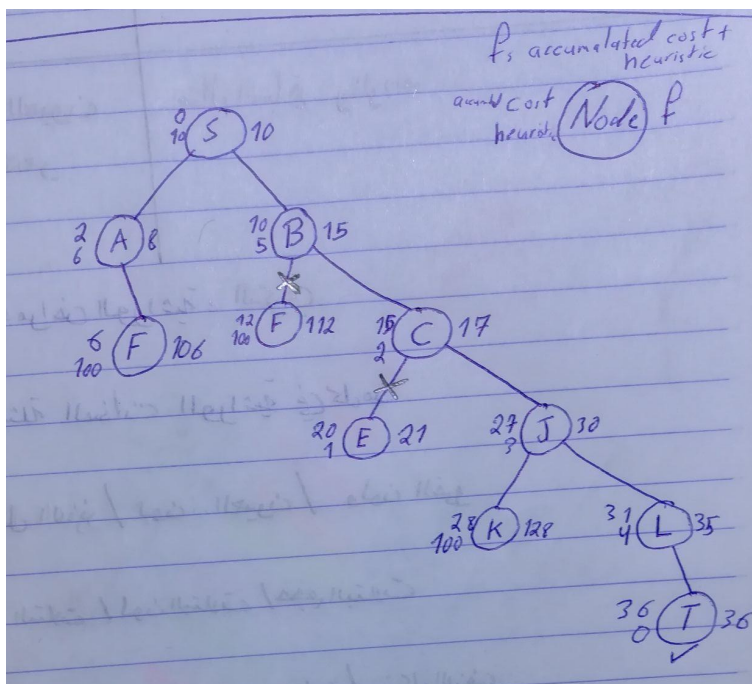 f, accumalated cost +
heuristic
cost
Node f
0
10 S 10
2
6 A 8
10
5 B 15
6
100 F 106
12
100 F 112
15
2 C 17
20
1 E 21
27
3 J 30
28
100 K 128
31
4 L 35
36
0 T 36